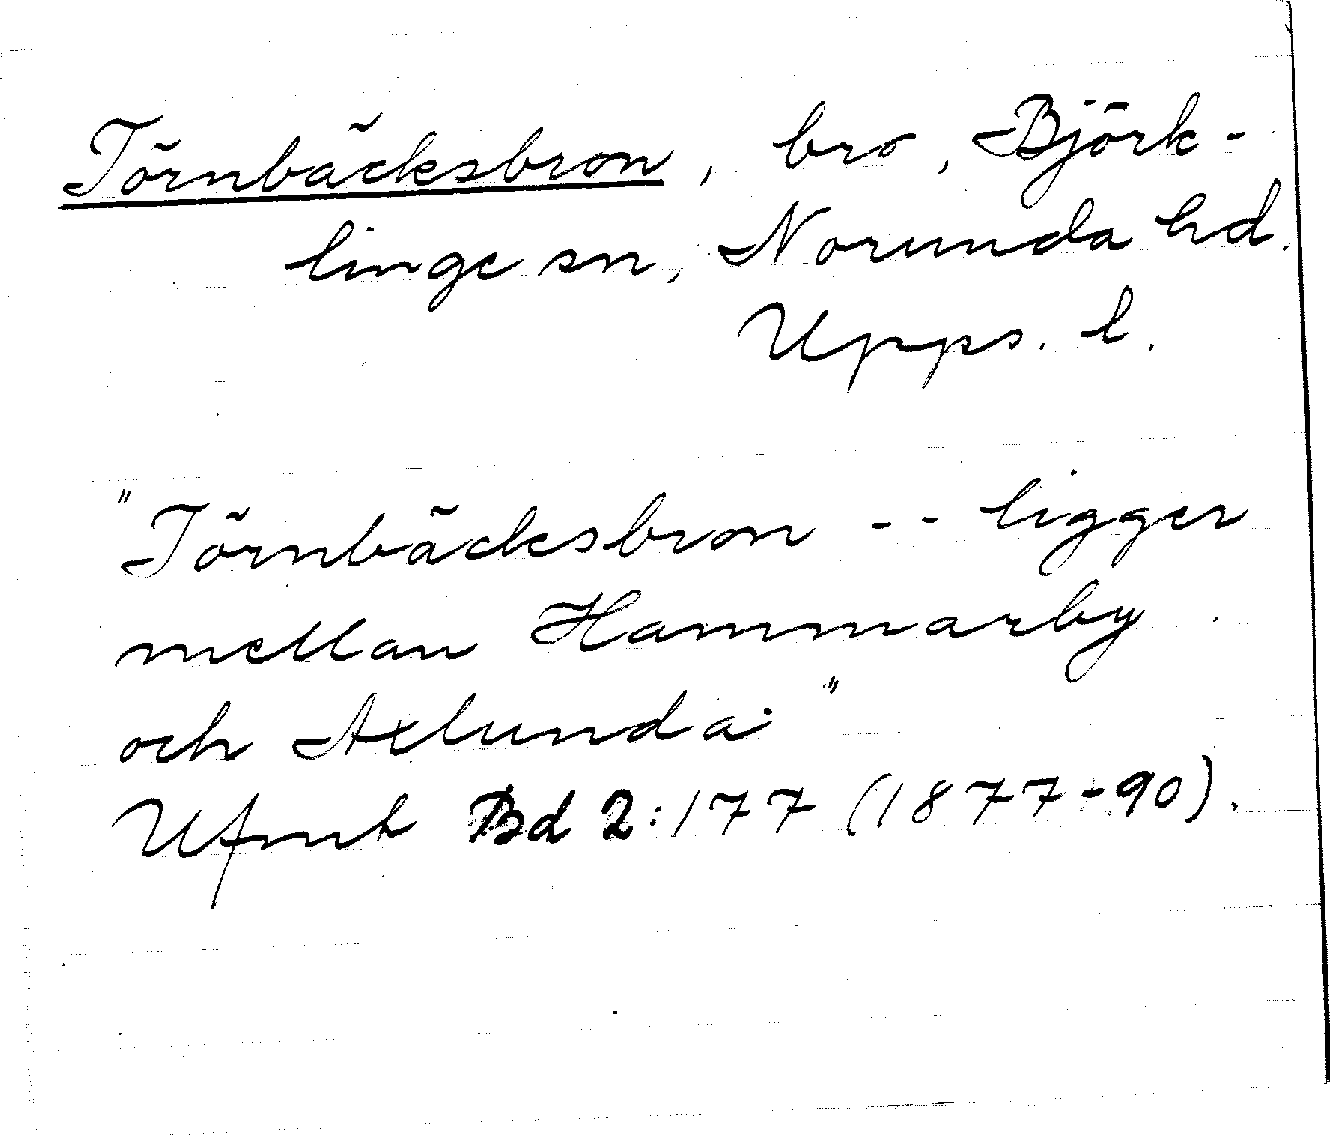 Törnbäcksbron, bro, Björk-
linge sn, Norunda hd.
Upps. l.
"Törnbäcksbron -- ligger
mellan Hammarby
och Axlunda."
Ufmt Bd 2:177 (1877-90).